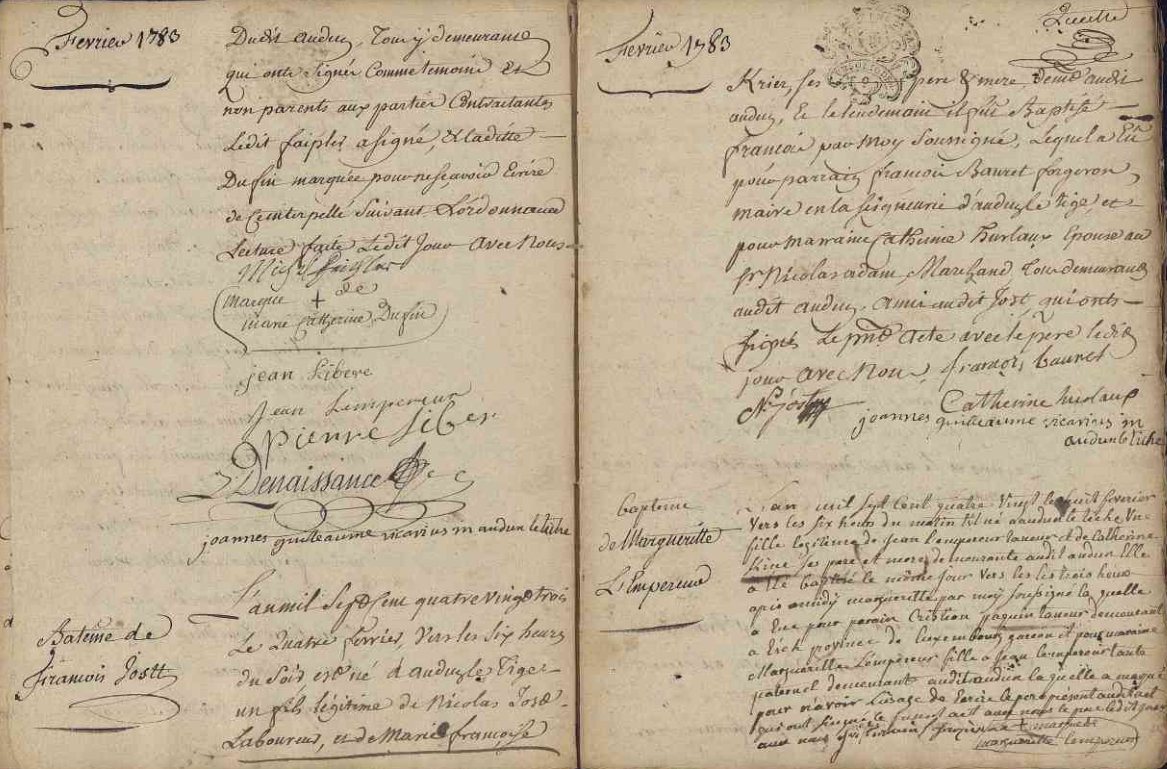 Fevrier 1783
Dudit auduy, Tous y demeurants
qui onts signés Comme temoins Et
non parents aux parties Contractantes
Ledit faipler a signé, Et Laditte
Dufin marquée pour ne sçavoir Ecrire
de Ce interpellé Suivant L'ordonnance
Lecture faite Ledit Jour Avec Nous
Michel
(marque + de
marie Catherine Dufin)
jean Libere
Jean Lempereur
Pierre Liber
Denaissance
joannes guilleaume vicarius in audun le tiche
Batême de
francois Jostt
L'an mil Sept Cent quatre vingt trois
Le Quatre fevrier, Vers les Six heures
du Soir est né à auduy le Tige
un fils légitime de Nicolas Jost
Laboureur, et de Marie françoise
Fevrier 1783
Krier, ses pere & mere, demt audit
auduy, Et le lendemain il fut Baptisé
francois par Moy Soussigné, Lequel a Eu
pour parrain francois Bauret forgeron,
maire en la seigneurie d'auduy le tige, et
pour marraine Catherine hurlaux Epouse au
Sr Nicolas adam, Marchand, Tous demeurants
audit auduy. amis audit Jost, qui onts
signés Le pnt Acte avec le pere ledit
jour avec Nous, francois bauret
N. jost
Catherine
joannes guilleaume vicarius in
audun le tiche
bapteme
de Margueritte
L'Empereur
L'an mil sept Cent quatre Vingt le huit feverier
Vers les six heurs du matin Est né a audun le tiche Vne
fille legitime de jean l'empereur taneur et de Catherine
Kine ses pere et mere demeurante audit audun Elle
a été baptisé le même jour Vers les trois heurs
apres midy marguerette par moy soussigné la quelle
a Eue pour parain Cristian paquin taneur demeurant
a Eich province de luxembourg garson et pour maraine
Marguerette L'empereur fille a jean lempereur tante
paternel demeurant audit audun la quelle a marqué
pour n'avoir L'usage de Ecrire le pere présent audit act
qui ont signé le present act avec nous le pere le dit jour
+ marque
marguerette lempereur